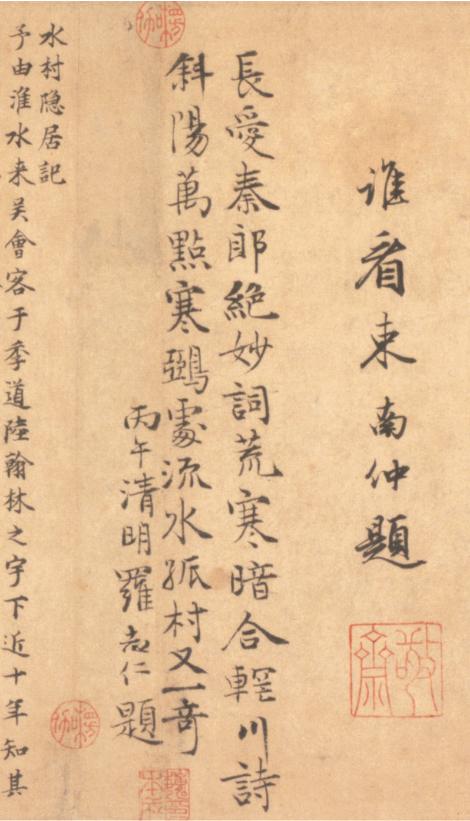 誰看束南仲題
敬齋
長愛秦郎絶妙詞荒寒暗合輞川詩
斜陽萬點寒鵶處流水孤村又一竒
丙午清明羅志仁題
水村隐居記
予由淮水来吴會客于季道陸翰林之宇下近十年知其